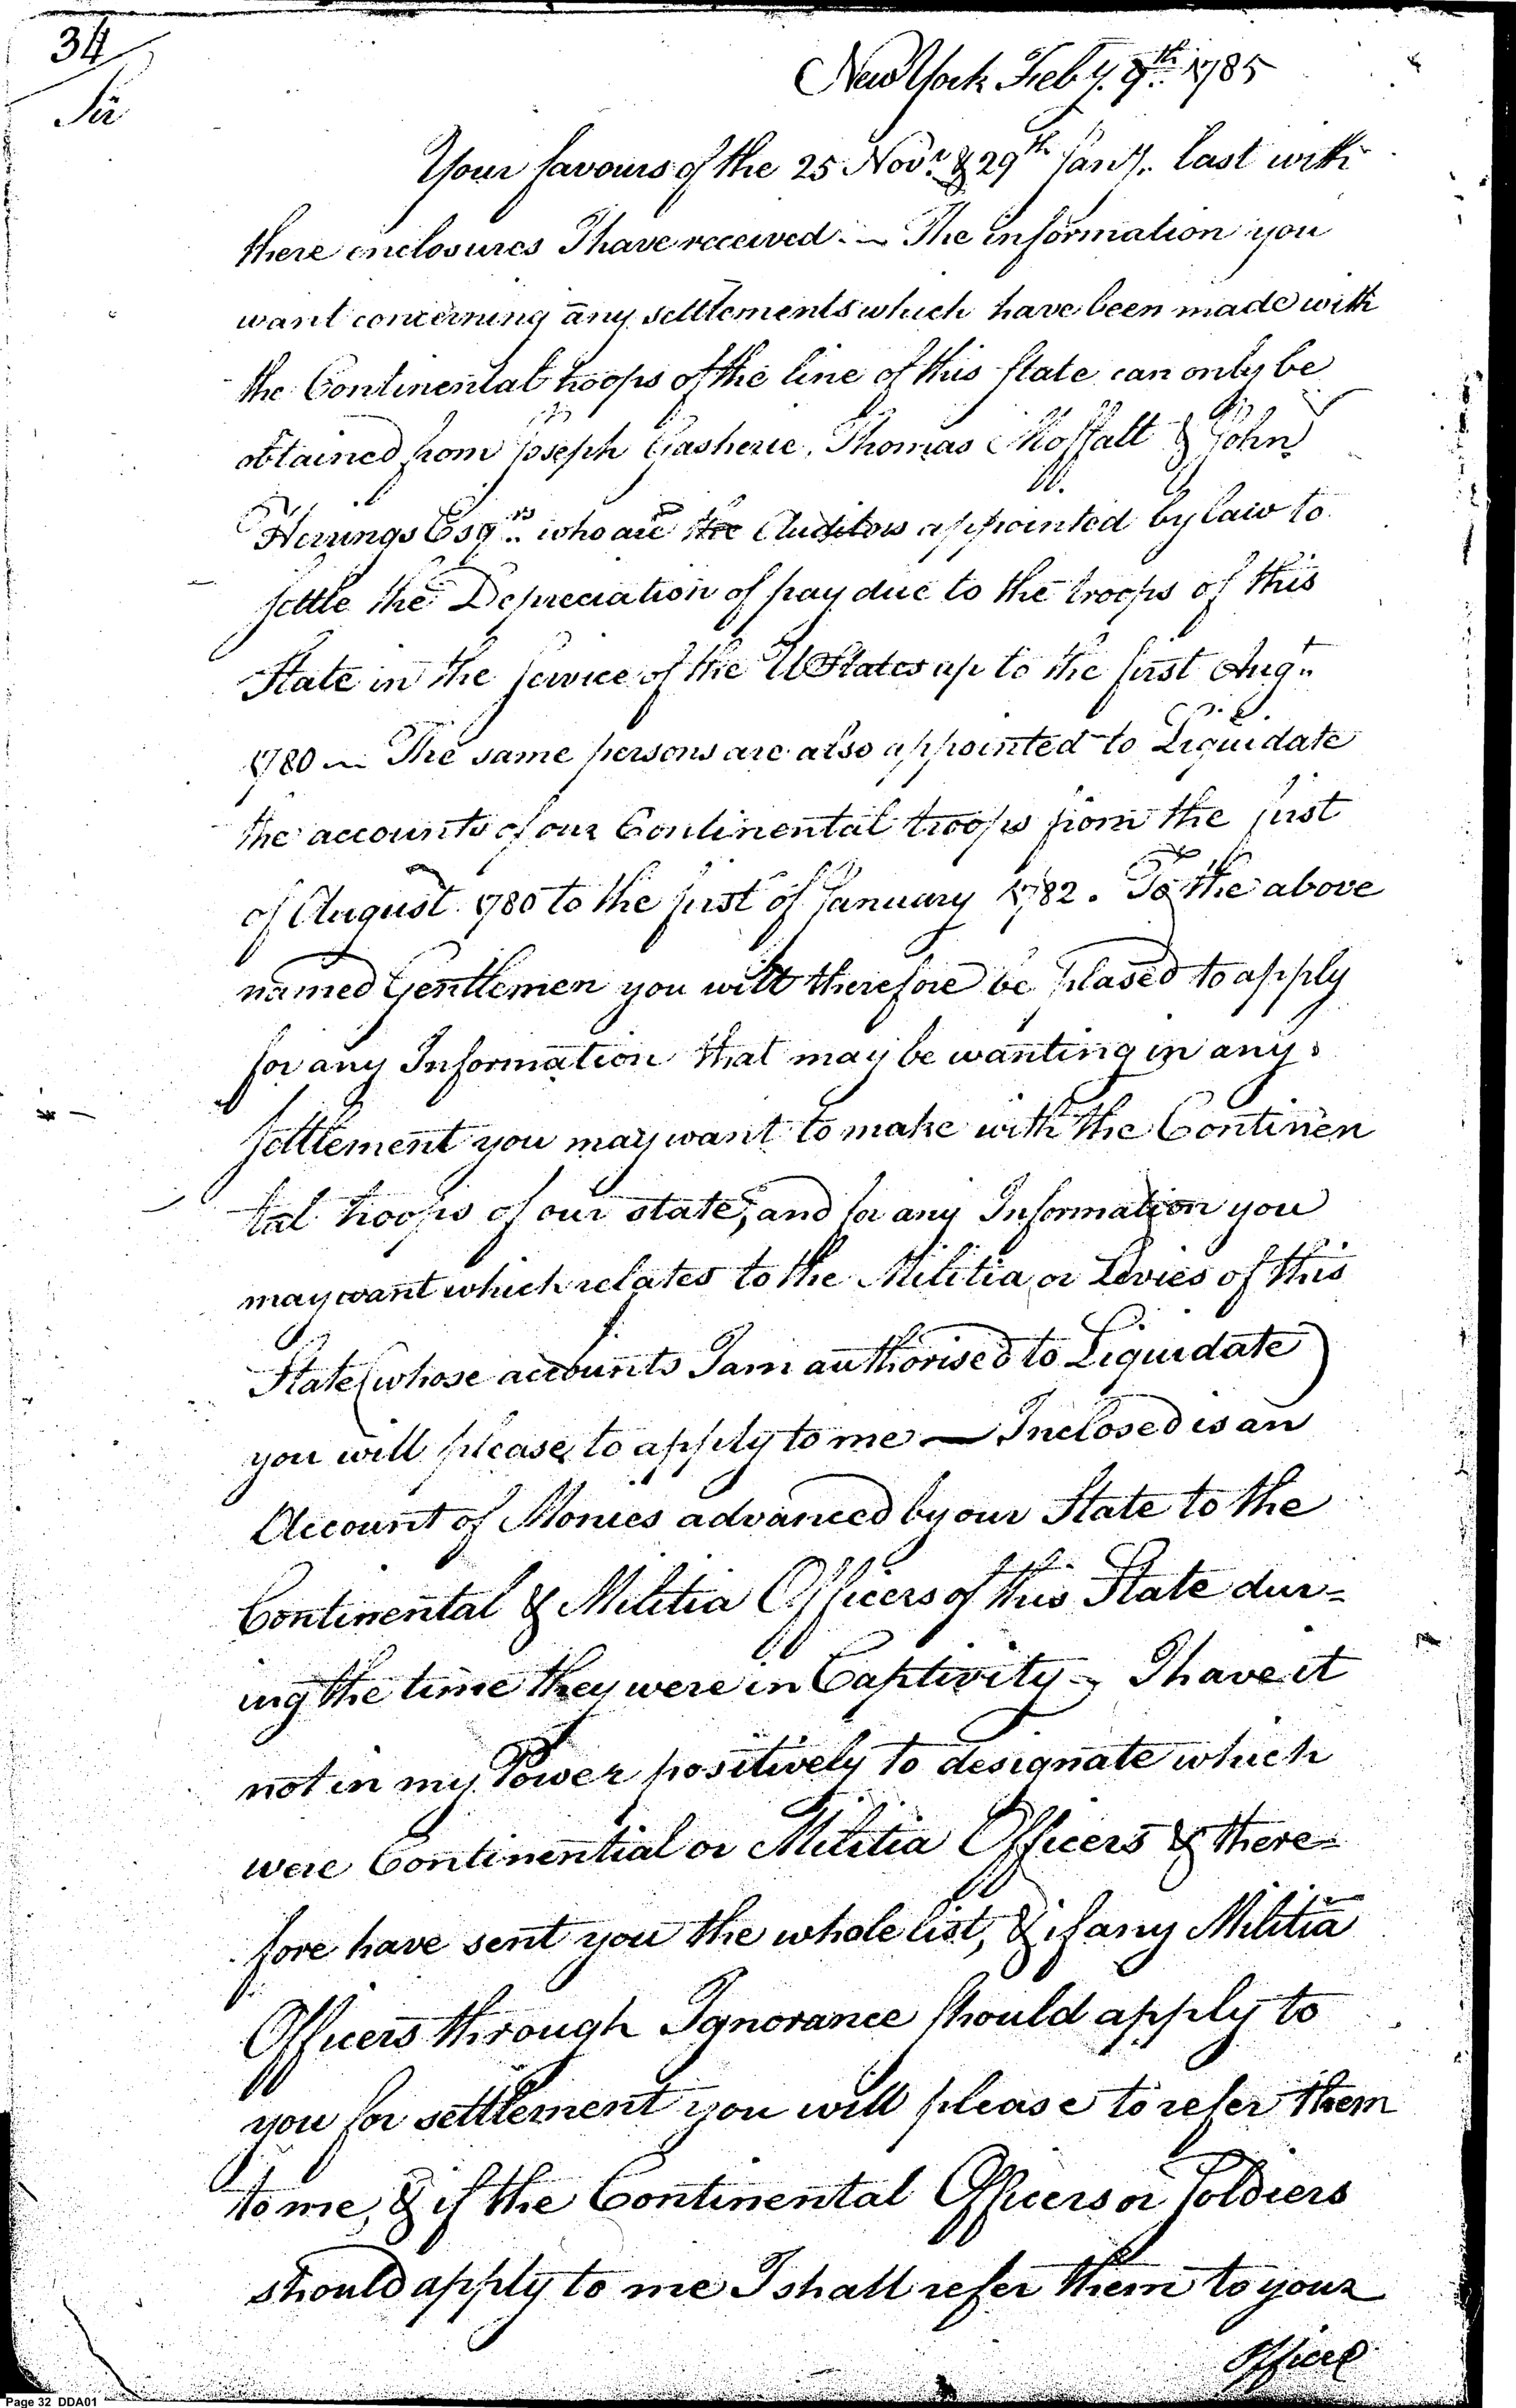 34
New York Feby. 9th. 1785
Sir
Your favours of the 25 Novr. & 29th Jany. last with
there enclosures I have received. — The information you
want concerning any settlements which have been made with
the Continental troops of the line of this State can only be
obtained from Joseph Gasherie, Thomas Moffatt & John
Herrings Esqrs. who are the Auditors appointed by law to
settle the Depreciation of pay due to the troops of this
State in the service of the U States up to the first Augt.
1780 — The same persons are also appointed to Liquidate
the accounts of our Continental troops from the first
of August 1780 to the first of January 1782. To the above
named Gentlemen you will therefore be plased to apply
for any Information that may be wanting in any
settlement you may want to make with the Continen
tal troops of our state, and for any Information you
may want which relates to the Militia or Levies of this
State (whose accounts I am authorised to Liquidate)
you will please to apply to me — Inclosed is an
Account of Monies advanced by our State to the
Continental & Militia Officers of this State dur=
ing the time they were in Captivity — I have it
not in my Power positively to designate which
were Continential or Militia Officers & there=
fore have sent you the whole list, & if any Militia
Officers through Ignorance should apply to
you for settlement you will please to refer them
to me, & if the Continental Officers or Soldiers
should apply to me I shall refer them to your
Office
Page 32 DDA01